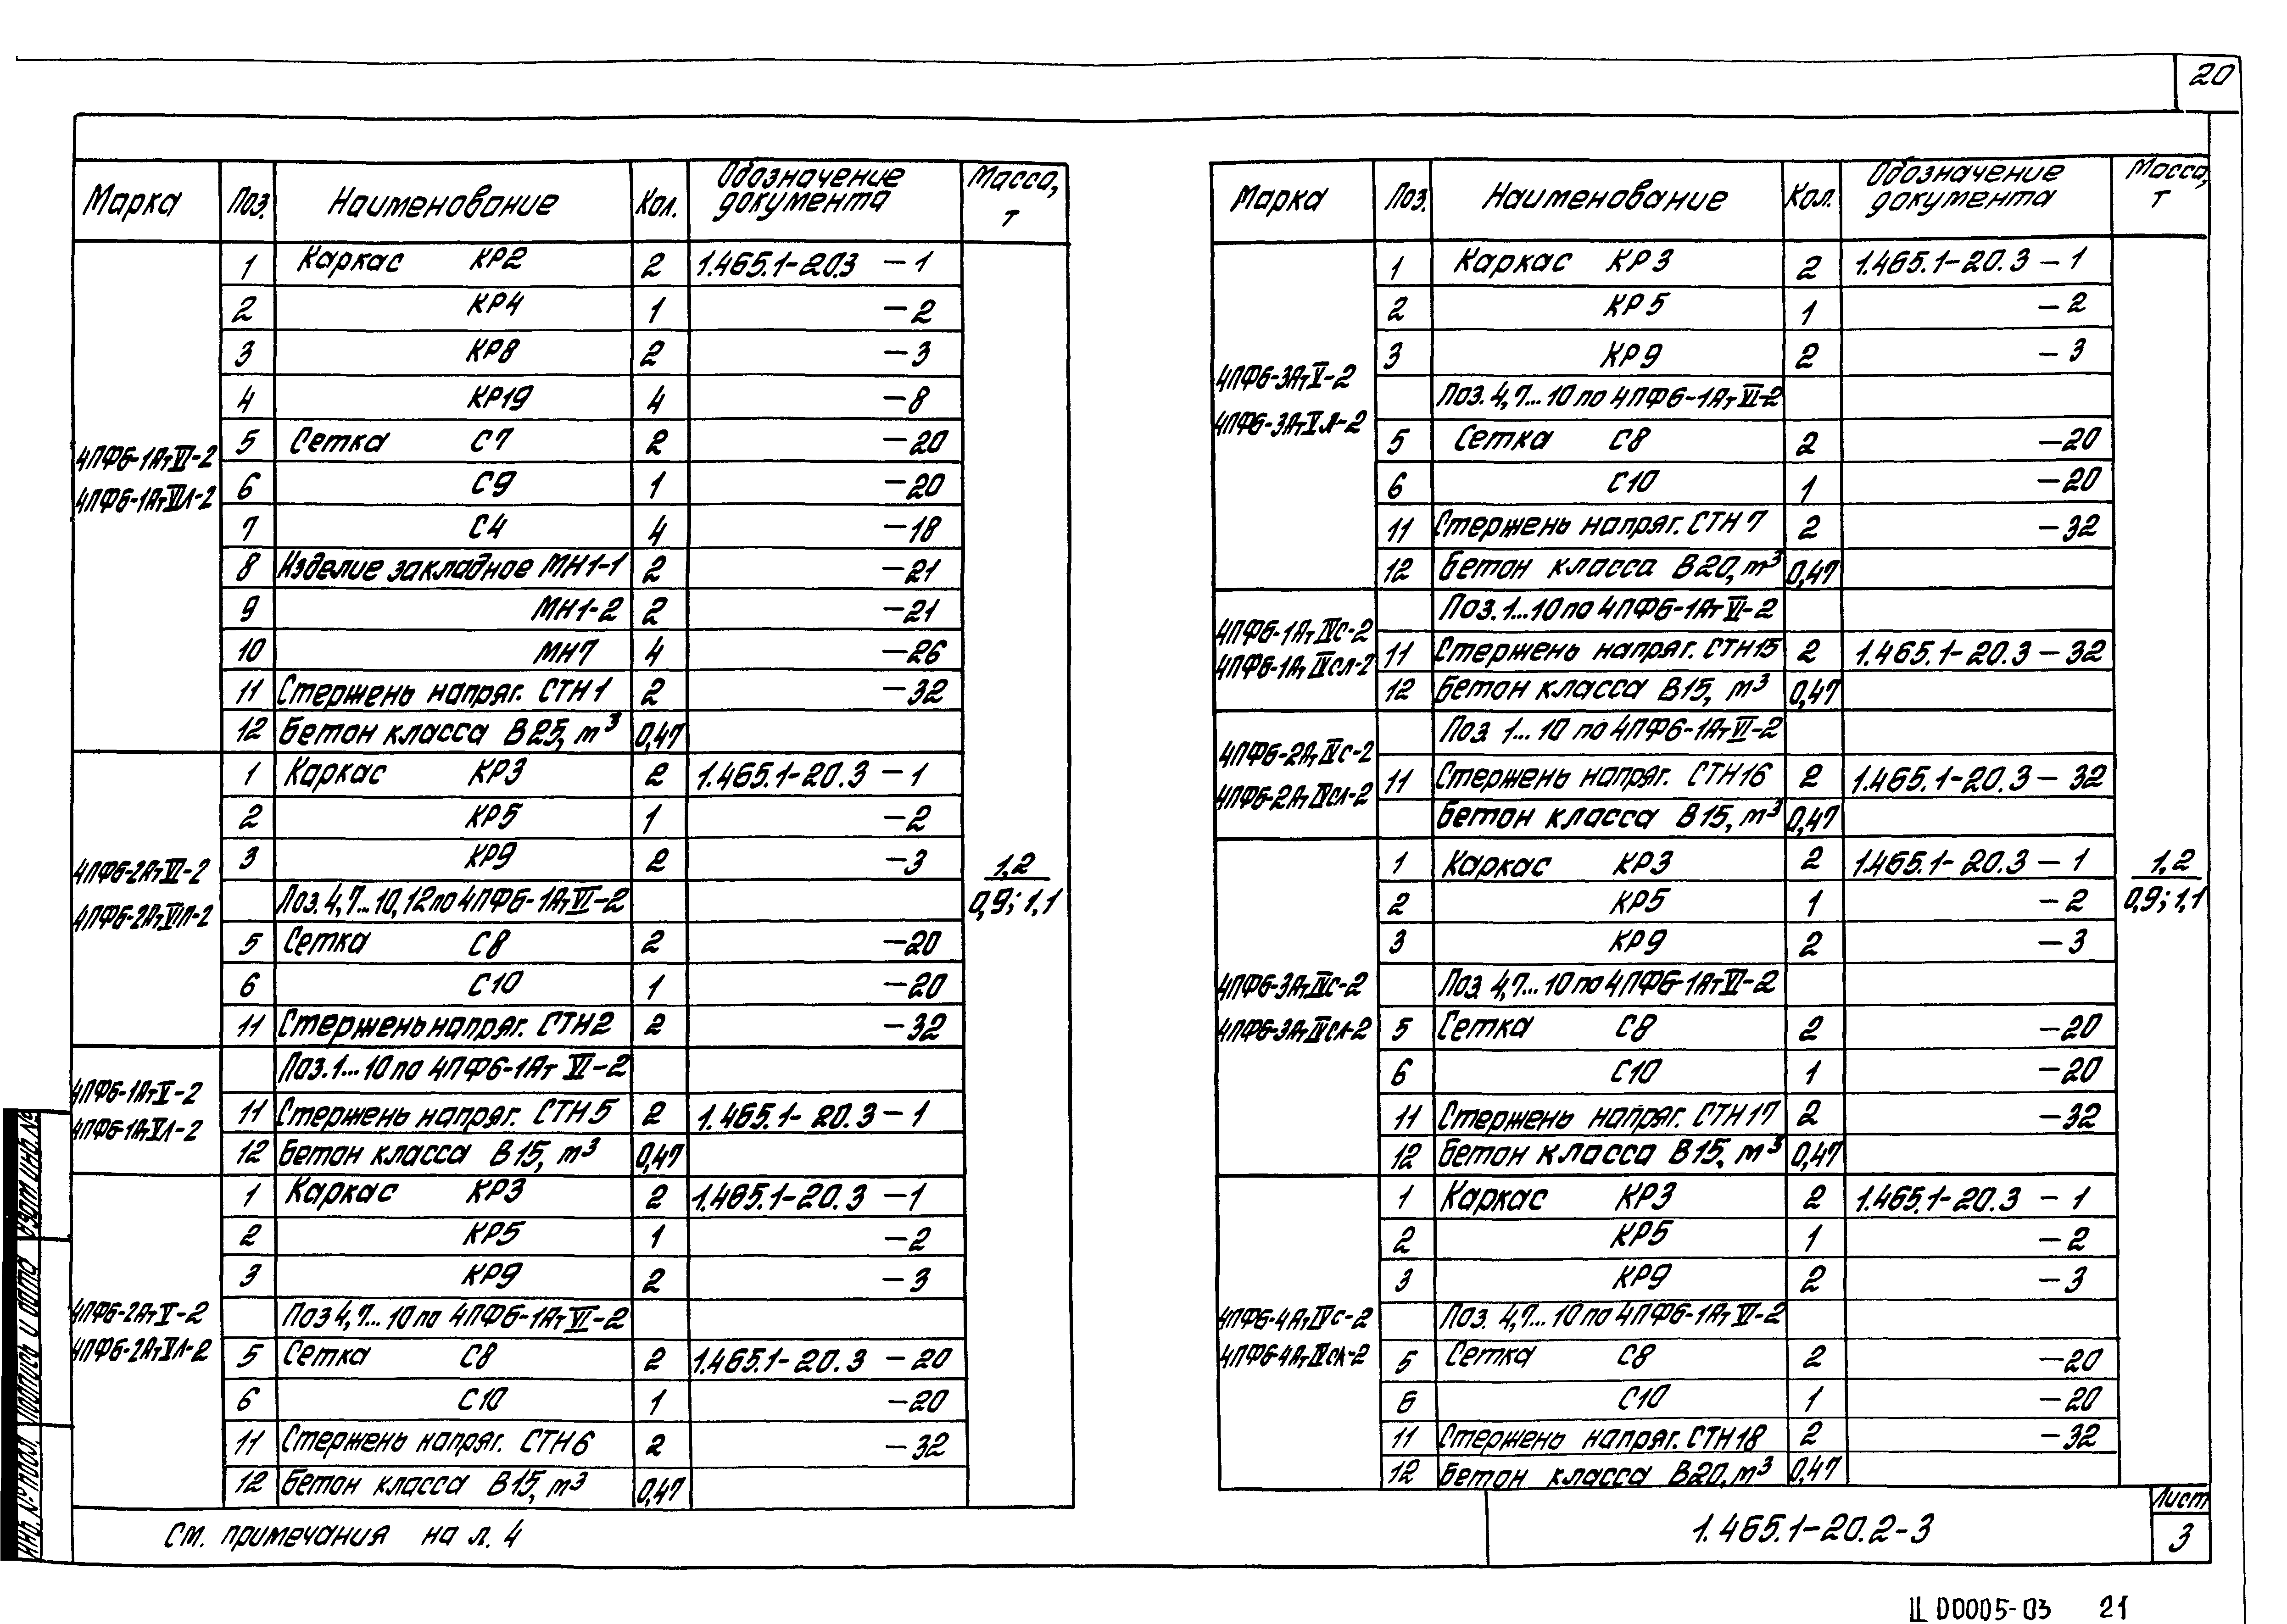 20
Марка Поз. Наименование Кол. Обозначение документа Масса, т
4ПФ6-1АтVI-2
4ПФ6-1АтVIЛ-2
1 Каркас КР2 2 1.465.1-20.3 -1
2 КР4 1 -2
3 КР8 2 -3
4 КР19 4 -8
5 Сетка С7 2 -20
6 С9 1 -20
7 С4 4 -18
8 Изделие закладное МН1-1 2 -21
9 МН1-2 2 -21
10 МН7 4 -26
11 Стержень напряг. СТН1 2 -32
12 Бетон класса В25, м³ 0,47
4ПФ6-2АтVI-2
4ПФ6-2АтVIЛ-2
1 Каркас КР3 2 1.465.1-20.3 -1
2 КР5 1 -2
3 КР9 2 -3
Поз. 4,7...10,12 по 4ПФ6-1АтVI-2
5 Сетка С8 2 -20
6 С10 1 -20
11 Стержень напряг. СТН2 2 -32
4ПФ6-1АтV-2
4ПФ6-1АтVЛ-2
Поз. 1...10 по 4ПФ6-1Ат VI-2
11 Стержень напряг. СТН5 2 1.465.1-20.3-1
12 Бетон класса В15, м³ 0,47
4ПФ6-2АтV-2
4ПФ6-2АтVЛ-2
1 Каркас КР3 2 1.465.1-20.3 -1
2 КР5 1 -2
3 КР9 2 -3
Поз 4,7...10 по 4ПФ6-1АтVI-2
5 Сетка С8 2 1.465.1-20.3 -20
6 С10 1 -20
11 Стержень напряг. СТН6 2 -32
12 Бетон класса В15, м³ 0,47
1,2
0,9; 1,1
Марка Поз. Наименование Кол. Обозначение документа Масса, т
4ПФ6-3АтV-2
4ПФ6-3АтVЛ-2
1 Каркас КР3 2 1.465.1-20.3 -1
2 КР5 1 -2
3 КР9 2 -3
Поз. 4,7...10 по 4ПФ6-1АтVI-2
5 Сетка С8 2 -20
6 С10 1 -20
11 Стержень напряг. СТН7 2 -32
12 Бетон класса В20, м³ 0,47
4ПФ6-1АтIVС-2
4ПФ6-1АтIVСЛ-2
Поз. 1...10 по 4ПФ6-1АтVI-2
11 Стержень напряг. СТН15 2 1.465.1-20.3-32
12 Бетон класса В15, м³ 0,47
4ПФ6-2АтIVС-2
4ПФ6-2АтIVСЛ-2
Поз. 1...10 по 4ПФ6-1АтVI-2
11 Стержень напряг. СТН16 2 1.465.1-20.3-32
Бетон класса В15, м³ 0,47
4ПФ6-3АтIVС-2
4ПФ6-3АтIVСЛ-2
1 Каркас КР3 2 1.465.1-20.3 -1
2 КР5 1 -2
3 КР9 2 -3
Поз. 4,7...10 по 4ПФ6-1АтVI-2
5 Сетка С8 2 -20
6 С10 1 -20
11 Стержень напряг. СТН17 2 -32
12 Бетон класса В15, м³ 0,47
4ПФ6-4АтIVС-2
4ПФ6-4АтIVСЛ-2
1 Каркас КР3 2 1.465.1-20.3 -1
2 КР5 1 -2
3 КР9 2 -3
Поз. 4,7...10 по 4ПФ6-1АтVI-2
5 Сетка С8 2 -20
6 С10 1 -20
11 Стержень напряг. СТН18 2 -32
12 Бетон класса В20, м³ 0,47
1,2
0,9; 1,1
См. примечания на л. 4
1.465.1-20.2-3
Лист
3
Инв. № подл. Подпись и дата Взам. инв. №
Ц 00005-03 21